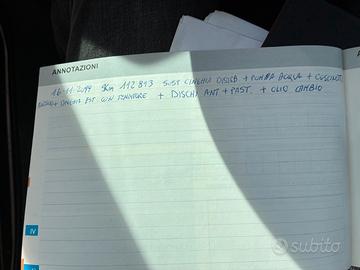 ANNOTAZIONI
16-11-2019 Km 112813 SOST CINGHIA DISTRIB + POMPA ACQUA + CUSCINOT
+ CINGHIA EST CON TENDITORE + DISCHI ANT + PAST. + OLIO CAMBIO
IV
subito